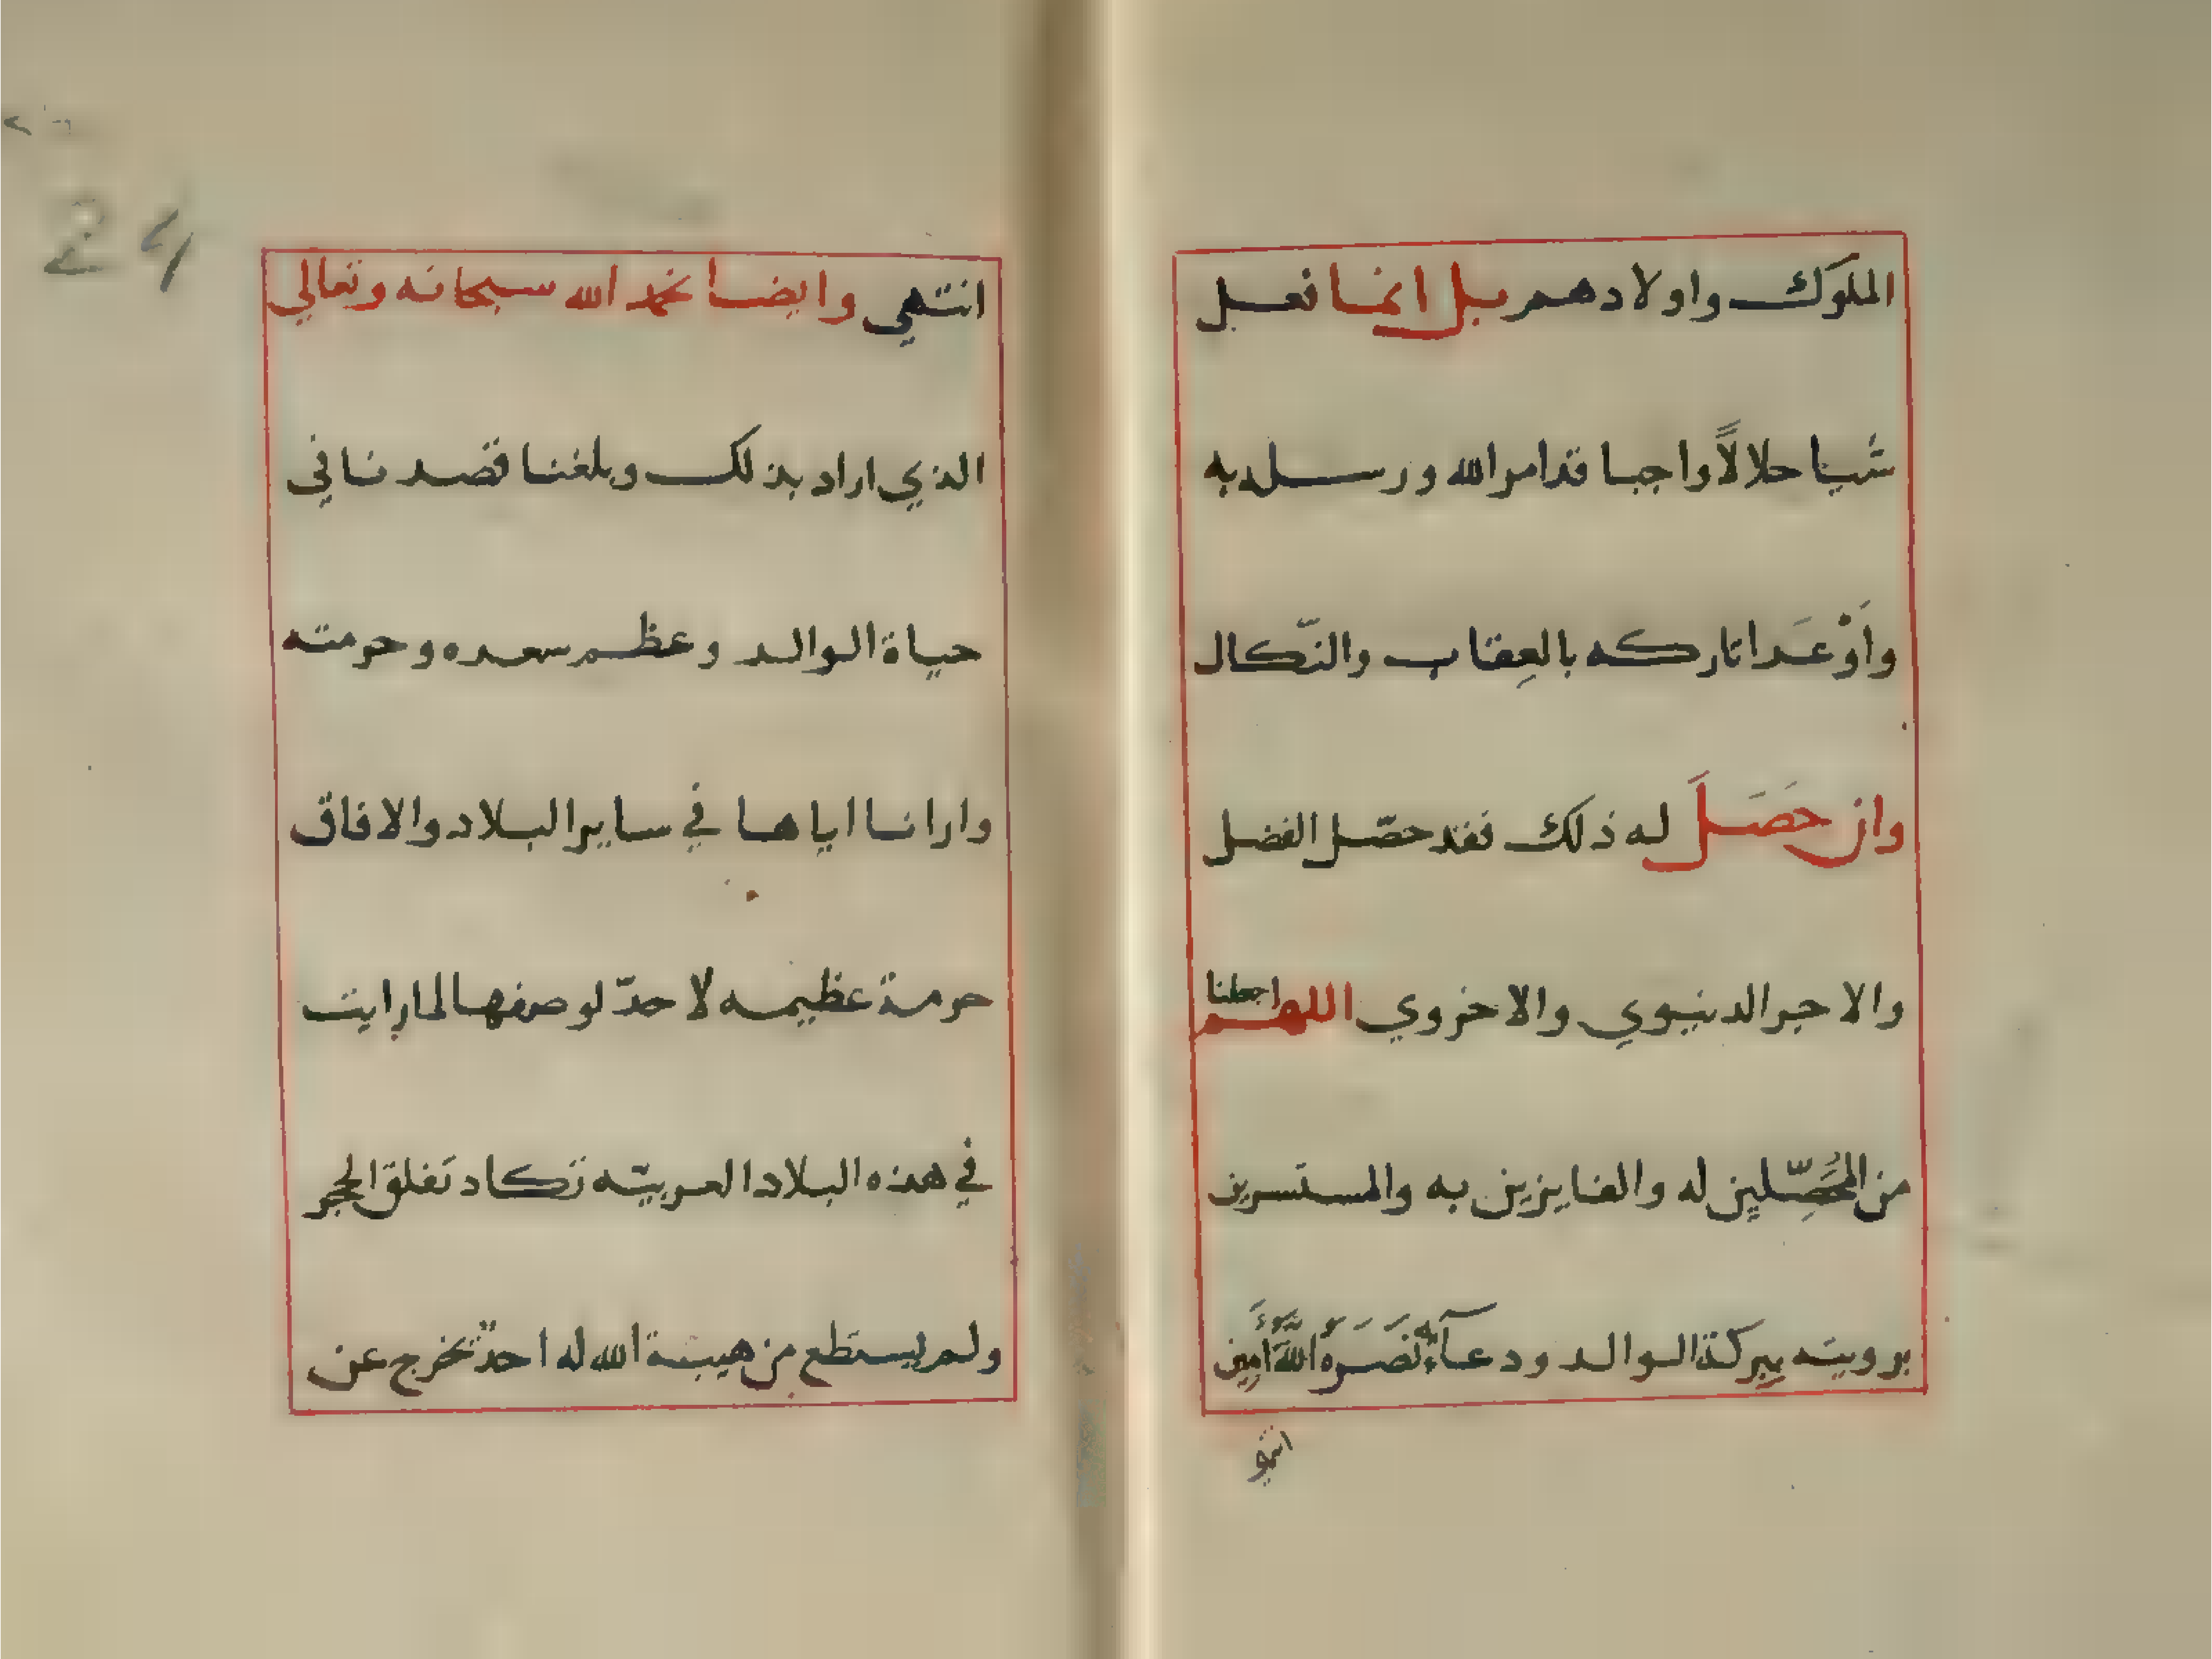 الملوك واولادهم بل انما نعل
شيا حلالاً واجبا قد امر الله ورسله به
واَوْعَدا تاركه بالعِقاب والنّكال
وان حَصَلَ له ذلك فقد حصّل الفضل
والاجر الدنيوي والاخروي اللهم اجعلنا
من المُحَصِّلين له والفايزين به والمستسرين
برويته ببركة الوالد ودعآئه نَصَرَهُ اللَّهُ اَمِين
انتهي
انتهي وايضا نحمد الله سبحانه وتعالي
الذي اراد بذلك وبلغنا قصدنا في
حياة الوالد وعظم سعده وحرمته
وارانا اياها في ساير البلاد والافاق
حرمة عظيمه لا حدّ لوصفها لما رايت
في هذه البلاد العربيّه تكاد تفلق الحجر
ولم يستطع من هيبة الله له احدٌ تخرج عن
24